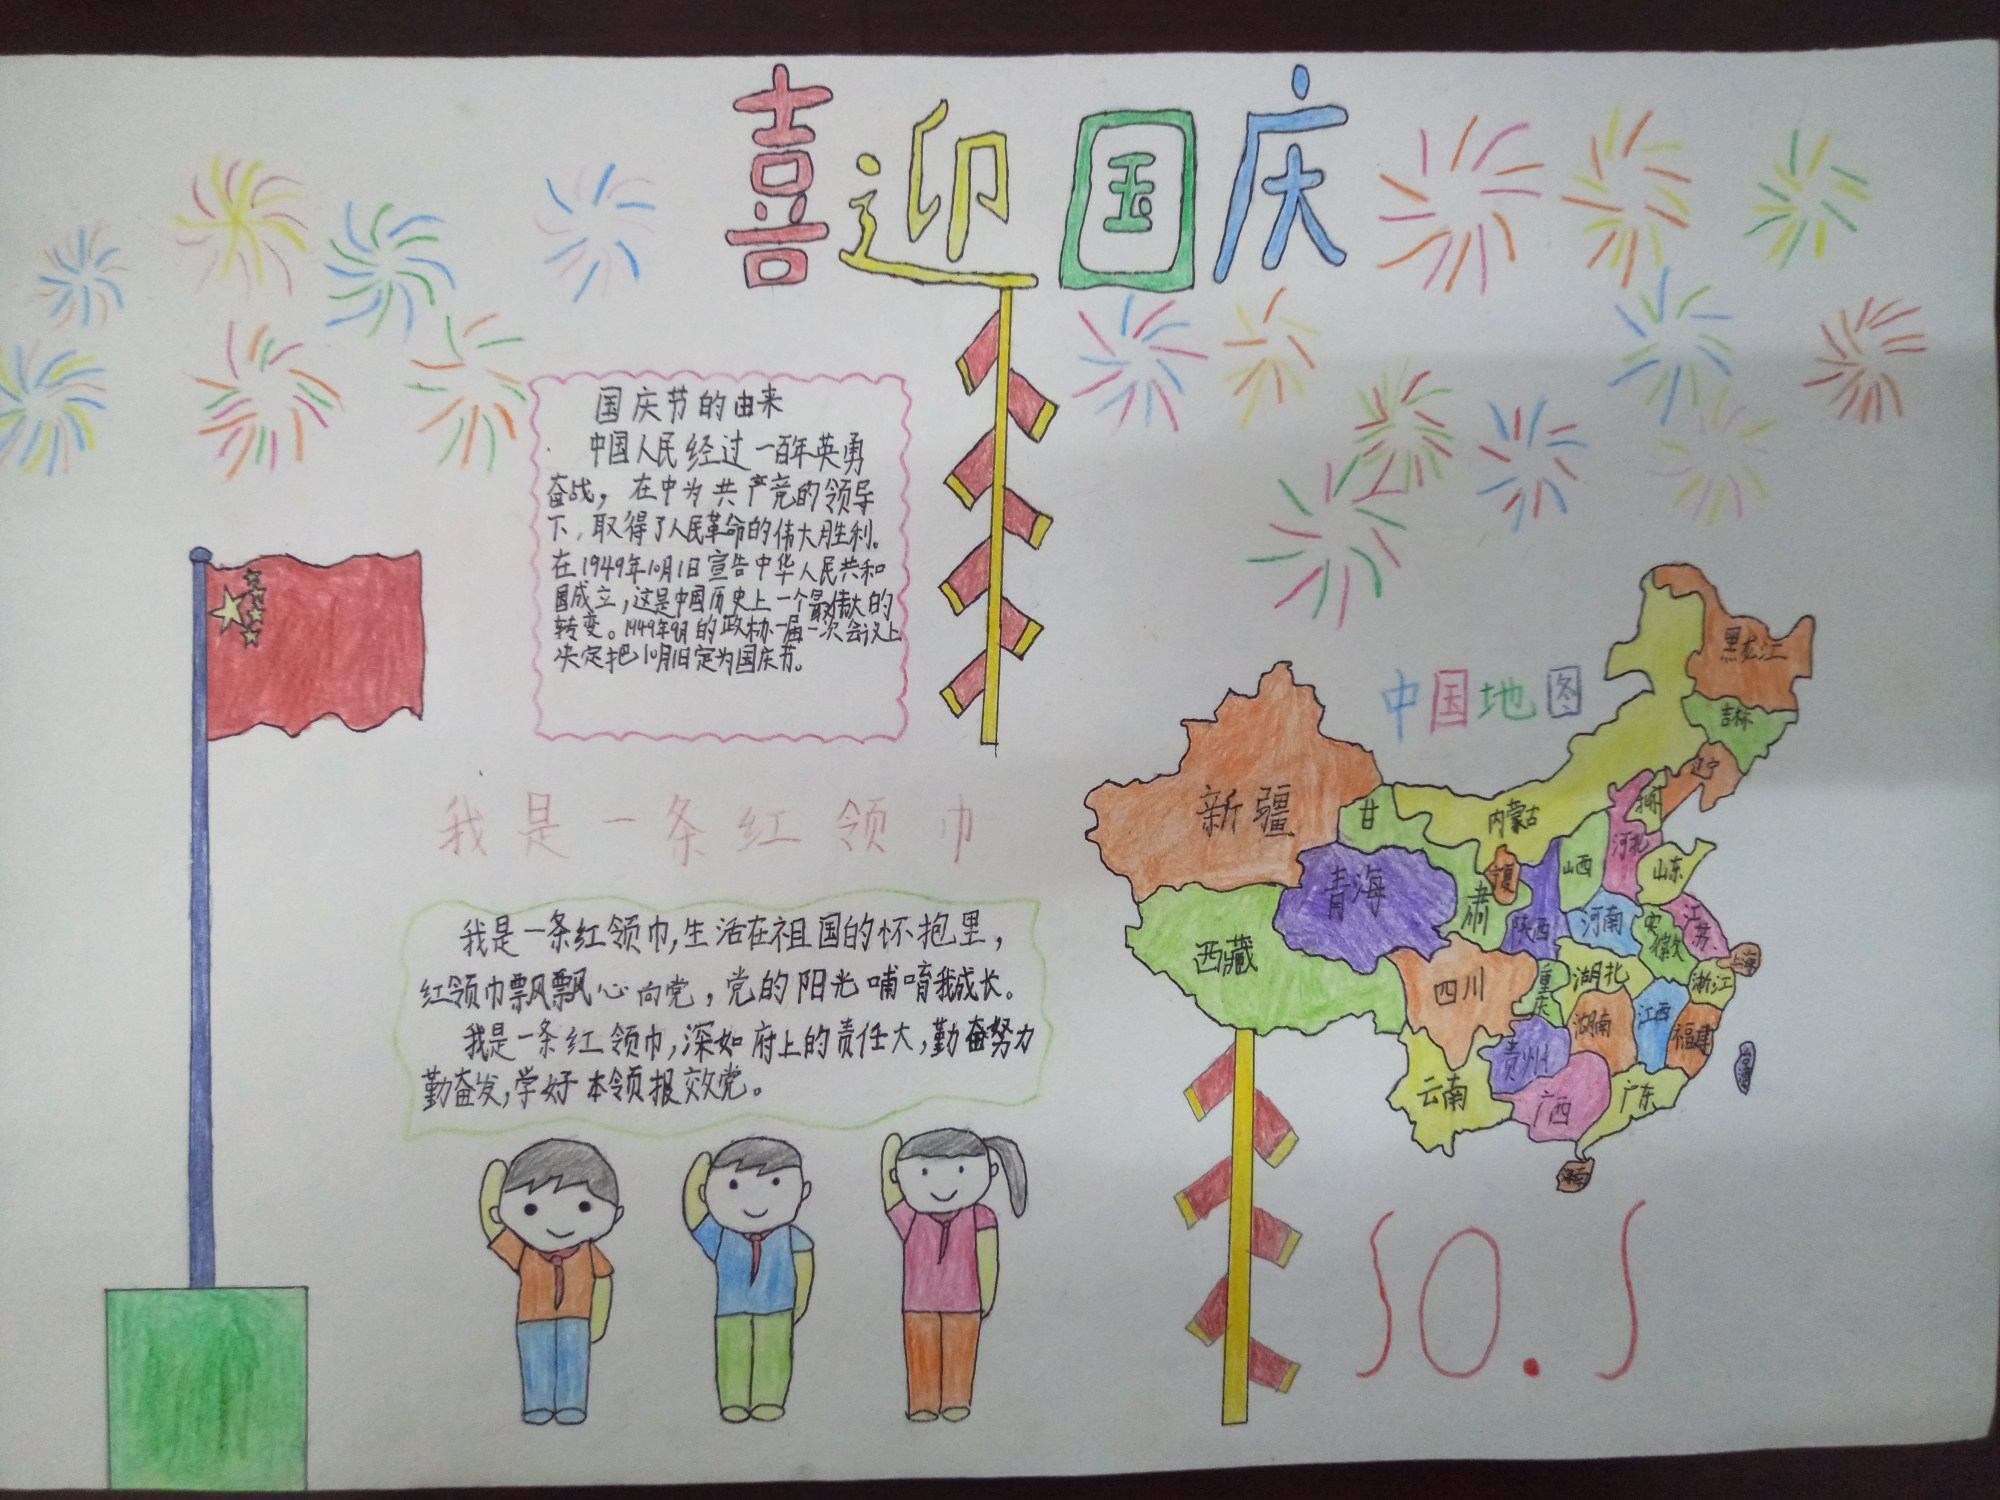 喜迎国庆
国庆节的由来
中国人民经过一百年英勇
奋战，在中为共产党的领导
下，取得了人民革命的伟大胜利。
在1949年10月1日宣告中华人民共和
国成立，这是中国历史上一个最伟大的
转变。1949年9月的政协一届一次会议上
决定把10月1日定为国庆节。
我是一条红领巾
我是一条红领巾，生活在祖国的怀抱里，
红领巾飘飘心向党，党的阳光哺育我成长。
我是一条红领巾，深知府上的责任大，勤奋努力
勤奋发，学好本领报效党。
中国地图
黑龙江
吉林
辽宁
新疆
甘
肃
内蒙古
河北
山西
山东
青海
宁夏
陕西
河南
安徽
江苏
上海
西藏
四川
重庆
湖北
浙江
湖南
江西
福建
贵州
云南
广西
广东
台湾
海南
10.1